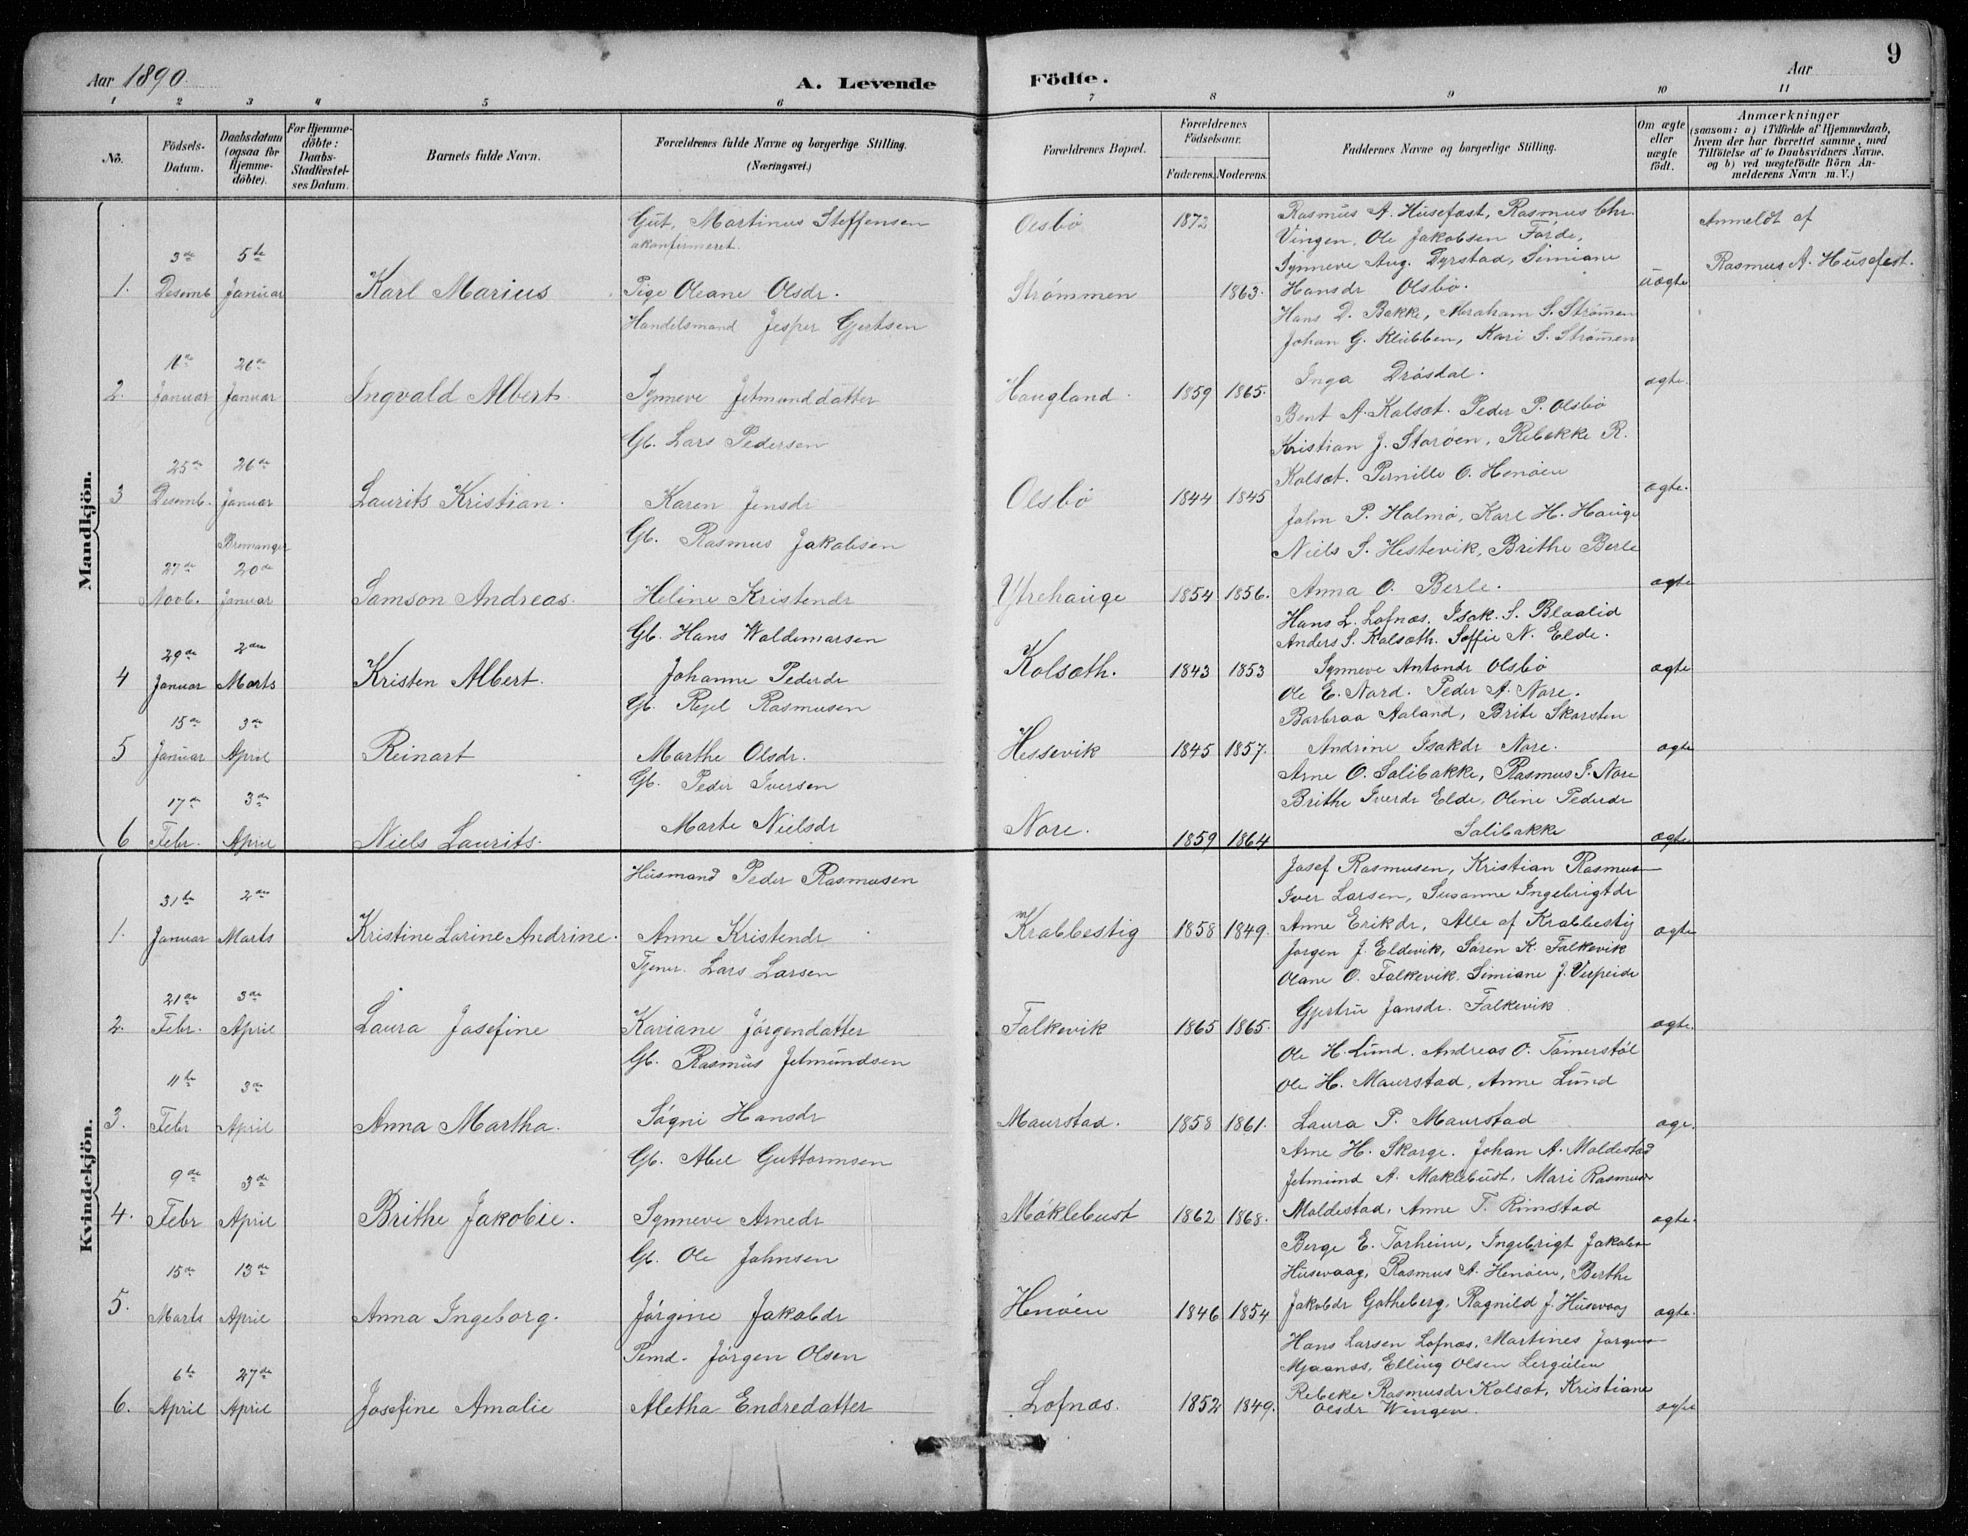 9
Aar 1890.
A. Levende Födte.
Aar
1 2 3 4 5 6 7 8 9 10 11
No.
Födsels-Datum.
Daabsdatum (ogsaa for Hjemme-döbte).
For Hjemme-döbte: Daabs-Stadfæstel-ses Datum.
Barnets fulde Navn.
Forældrenes fulde Navne og borgerlige Stilling. (Næringsvei.)
Forældrenes Bopæl.
Forældrenes Födselsaar.
Faderens. Moderens.
Faddernes Navne og borgerlige Stilling.
Om ægte eller uægte födt.
Anmærkninger
(saasom: a) i Tilfælde af Hjemmedaab, hvem der har forrettet samme, med Tilföielse af to Daabsvidners Navne. og b) ved uægtefödte Börn Anmelderens Navn m. V.)
Mandkjön.
1. 3de Desemb. 5te Januar Karl Marius
Gut, Martinus Steffensen
ukonfirmeret.
Pige Oleane Olsdr.
Olsbø 1872
Strømmen 1863.
Rasmus A. Husefæst, Rasmus Chr.
Vingen, Ole Jakobsen Førde,
Synneve Aug. Dyrstad, Simiane
Hansdr Olsbø.
uægte
Anmeldt af
Rasmus A. Husefest.
2. 11te Januar 26de Januar Ingvald Albert.
Handelsmand Jesper Gjertsen
Synneve Jetmunddatter
Haugland. 1859 1865.
Hans D. Bakke, Abraham S. Strømmen
Johan G. Klubben, Kari S. Strømmen
Inga Drøsdal.
ægte.
3 25de Desemb. 26de Januar Laurits Kristian.
Gb. Lars Pedersen
Karen Jensdr
Olsbø 1844 1845
Bent A. Kolsæt. Peder P. Olsbø
Kristian J. Storøen, Rebekke R.
Kolsæt. Pernille O. Henøen
ægte.
27de Novb. Bremanger 20de Januar Samson Andreas.
Gb. Rasmus Jakobsen
Heline Kristendr
Ytrehauge 1854 1856.
John P. Holmø, Karl H. Hauge
Niels S. Hestevik, Brithe Berle
Anna O. Berle.
ægte
4 29de Januar 2den Marts Kristen Albert.
Gb. Hans Waldemarsen
Johanne Pederdr
Kolsæth. 1843 1853
Hans L. Lofnæs. Isak. S. Blaalid
Anders S. Kolsæth. Soffie N. Elde.
Synneve Antondr Olsbø
ægte
5 15de Januar 3de April Reinart
Gb. Rejel Rasmusen
Marthe Olsdr.
Hessevik 1845 1857.
Ole E. Nord. Peder A. Nore.
Barbraa Aaland, Brite Skorsten
Andrine Isakdr Nore.
ægte
6 17de Febr. 3de April Niels Laurits.
Gb. Peder Iversen
Marte Nielsdr
Nore. 1859 1864
Arne O. Salibakke, Rasmus J. Nore
Brithe Iverdr Elde, Oline Pederdr
Salibakke
ægte
Kvindekjön.
1. 31te Januar 2den Marts Kristine Larine Andrine.
Husmand Peder Rasmusen
Anne Kristendr
Krabbestig 1858 1849.
Josef Rasmusen, Kristian Rasmus
Iver Larsen, Susanne Ingebrigtdr
Anne Erikdr, Alle af Krabbestig
ægte
2. 21de Febr. 3de April Laura Josefine
Tjener. Lars Larsen
Kariane Jørgendatter
Falkevik 1865 1865.
Jørgen J. Eldevik, Søren K. Falkevik
Olane O. Falkevik. Simiane J. Verpeide
Gjertru Jansdr. Falkevik
ægte.
3. 11te Febr 3de April Anna Martha.
Gb. Rasmus Jetmundsen
Søgni Hansdr
Maurstad. 1858 1861.
Ole H. Lund. Andreas O. Tømerstøl
Ole H. Maurstad, Anne Lund
Laura P. Maurstad
æge.
4. 9de Febr 3de April Brithe Jakobie.
Gb. Abel Guttormsen
Synneve Arnedr
Møklebust 1862 1868.
Arne H. Skorge. Johan A. Moldestad
Jetmund A. Møklebust, Mari Rasmusdr
Moldestad, Anne T. Rimstad
ægte.
5. 15de Marts 13de April Anna Ingeborg.
Gb. Ole Johnsen
Jørgine Jakobdr
Henøen 1846 1854
Berge E. Torheim, Ingebrigt Jakobsn
Husevaag, Rasmus A. Henøen, Berthe
Jakobdr Gotheberg, Ragnild J. Husevaag
ægte.
6. 6te April 27de April Josefine Amalie
Pemd. Jørgen Olsen
Aletha Endredatter
Lofnæs. 1852 1849.
Hans Larsen Lofnæs, Martines Jørgens
Mjaanæs, Elling Olsen
Rebeke Rasmusdr Kolsæt, Kristiane
Olsdr Wengen.
ægte